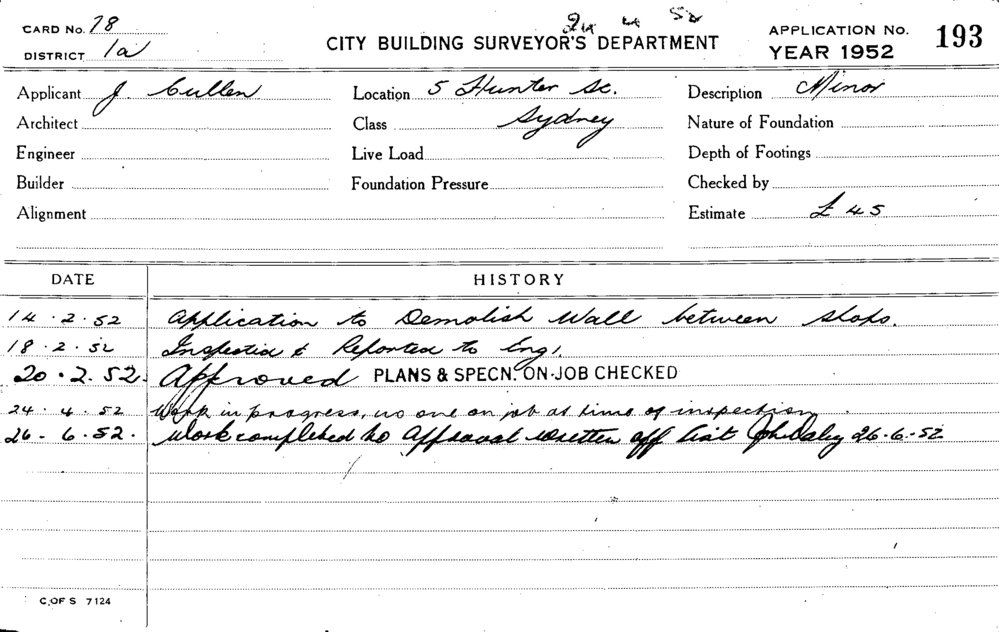 CARD No. 78
24 4 52
CITY BUILDING SURVEYOR'S DEPARTMENT
APPLICATION No. 193
DISTRICT 1a
YEAR 1952
Applicant J. Cullen Location 5 Hunter St. Description Minor
Architect Class Sydney Nature of Foundation
Engineer Live Load Depth of Footings
Builder Foundation Pressure Checked by
Alignment Estimate £45
DATE HISTORY
14.2.52 Application to Demolish Wall between shops.
18.2.52 Inspected & Reported to Eng'.
20.2.52. Approved PLANS & SPECN. ON JOB CHECKED
24.4.52 Work in progress, no one on job at time of inspection.
26-6.52. Work completed to Approval written off list 26.6.52
C. OF S 7124